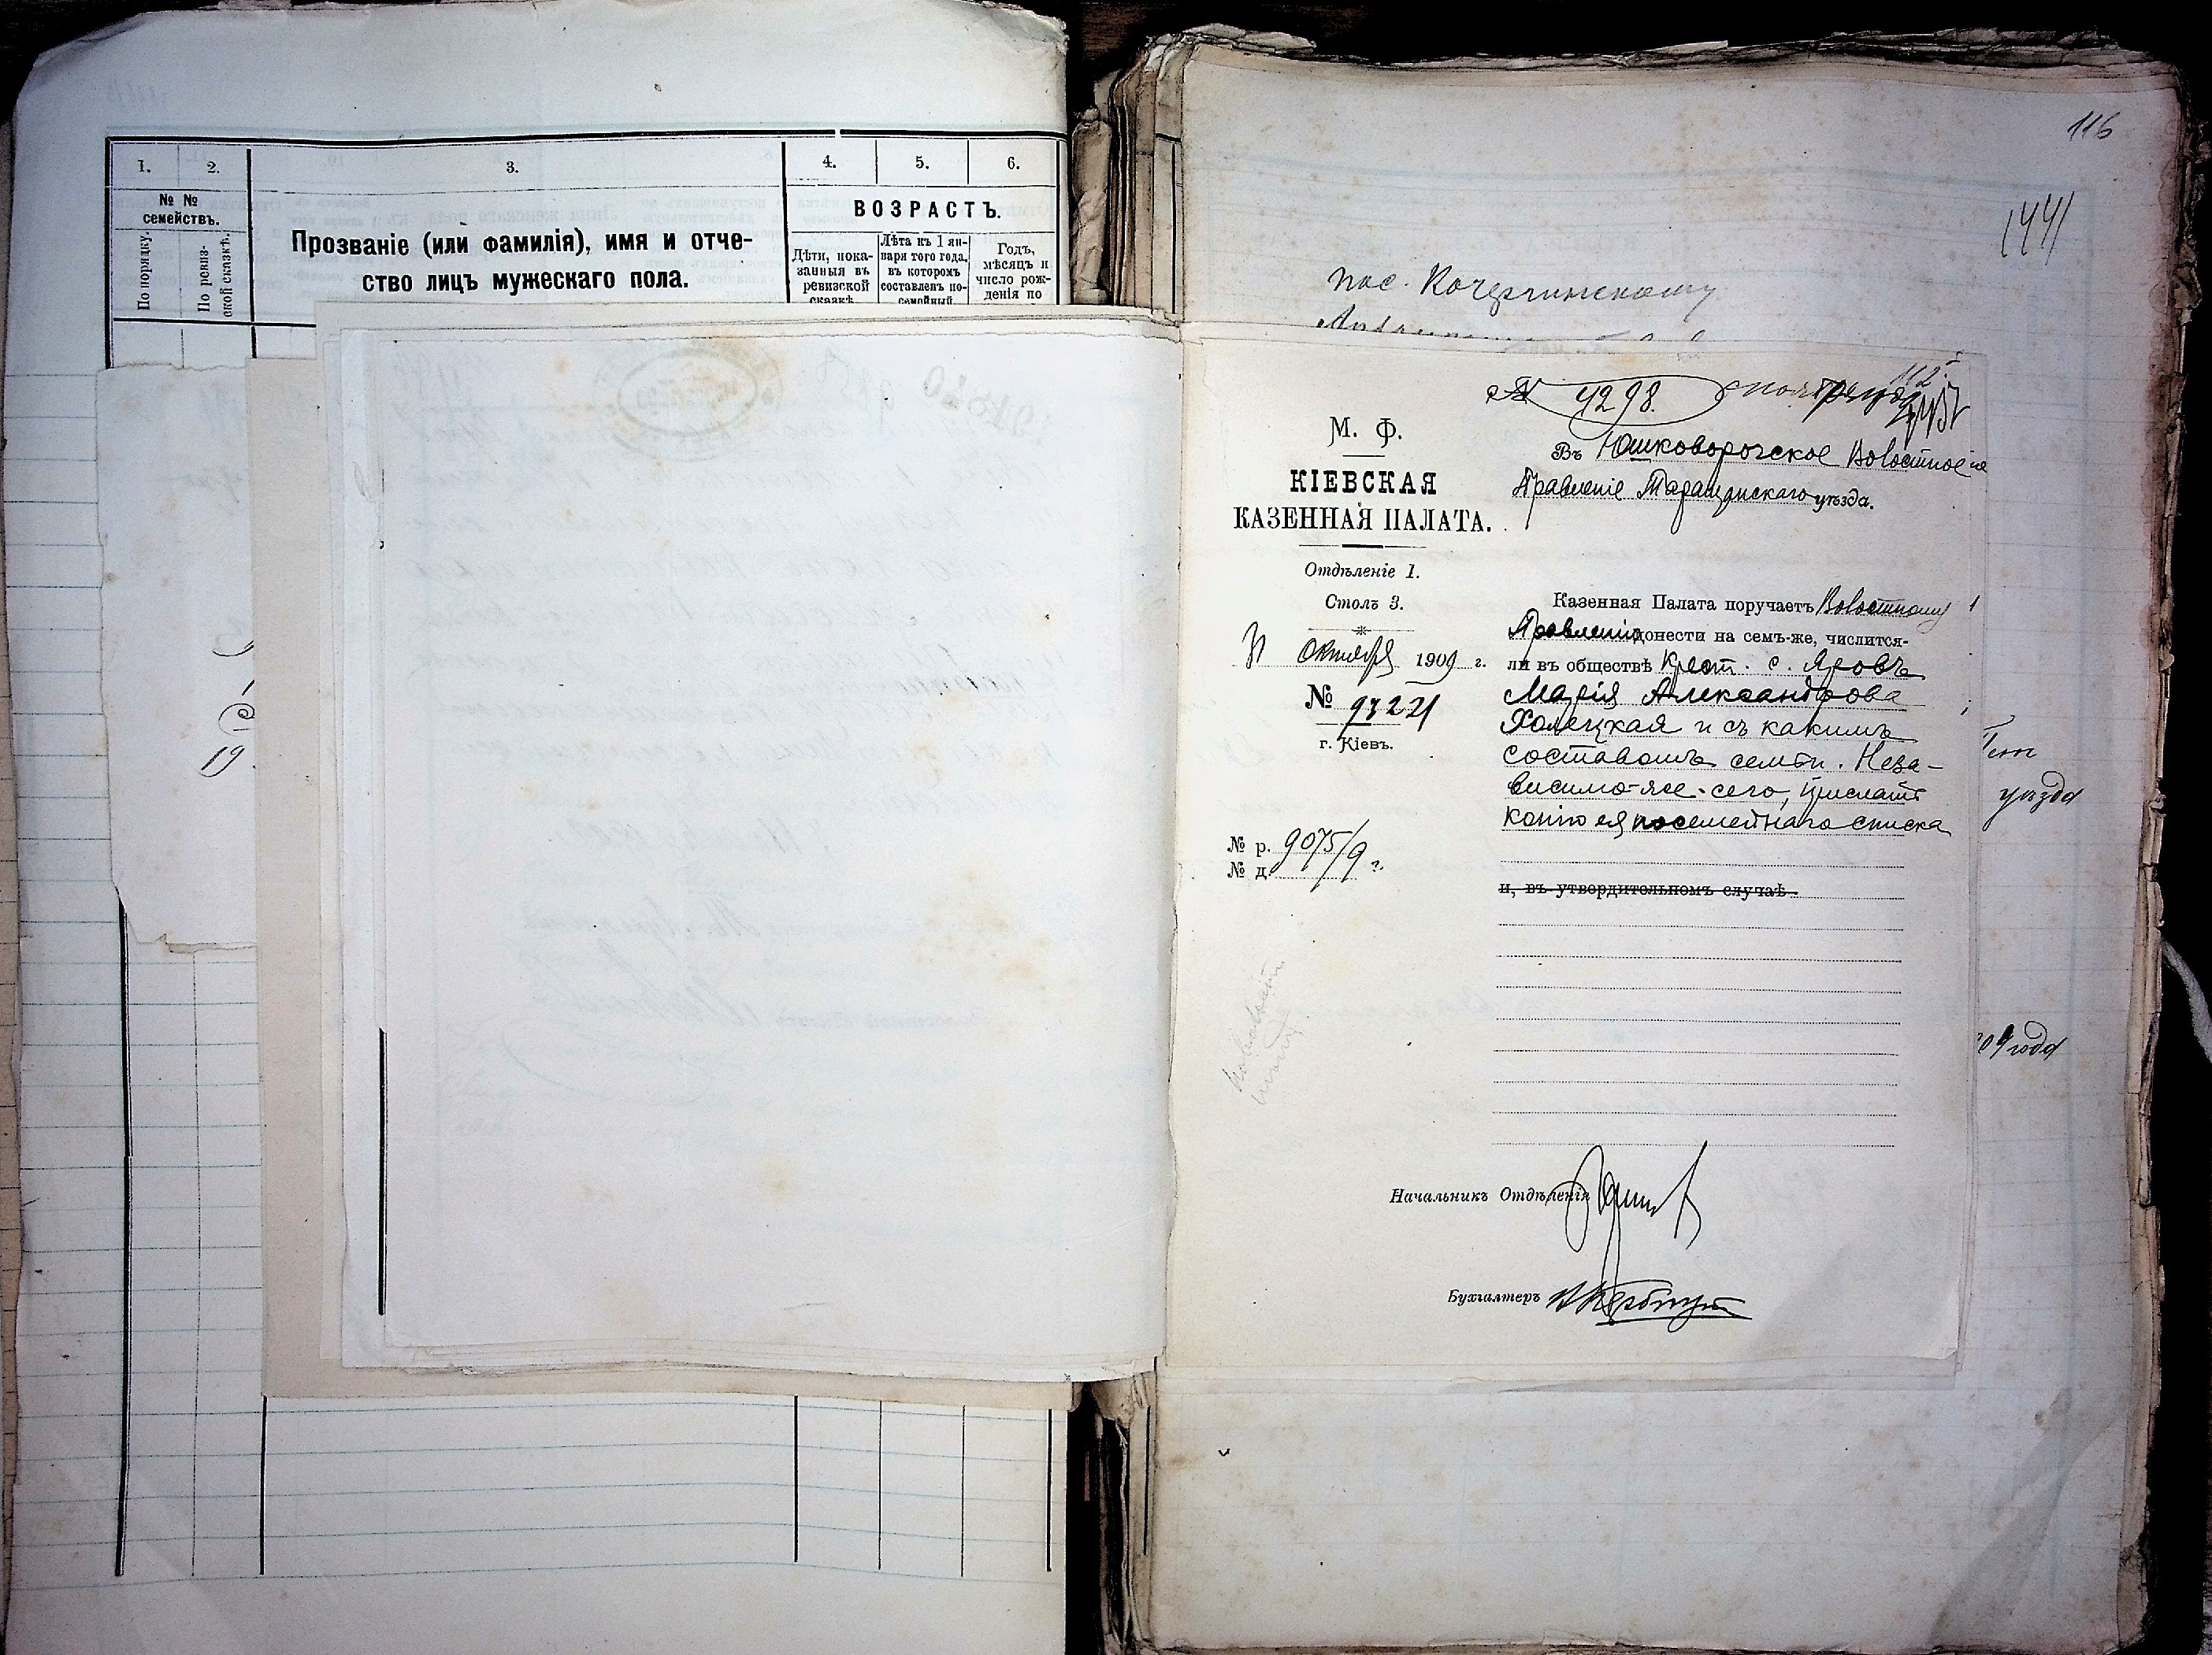 1. 2. 3. 4. 5. 6.
№ №
семействъ.
По порядку.
По ревиз-
ской сказкѣ.
Прозваніе (или фамилія), имя и отче-
ство лицъ мужескаго пола.
ВОЗРАСТЪ.
Дѣти, пока-
занныя въ
ревизской
сказкѣ
Лѣта къ 1 ян-
варя того года,
въ которомъ
составленъ по-
семейный
Годъ,
мѣсяцъ и
число рож-
денія по
19
116
1441
пос.
112
№ 4298.
М. Ф.
КІЕВСКАЯ
КАЗЕННАЯ ПАЛАТА.
Отдѣленіе 1.
Столъ 3.
Октября 1909 г.
№ 97221
г. Кіевъ.
№ р. 9075/9 г.
№ д.
Въ Юшковорогское Волостное
Правленіе Таращанскаго уѣзда.
Казенная Палата поручаетъ Волостному
Правленію донести на семъ-же, числится-
ли въ обществѣ крест. с. Яровъ
Марія Александрова
Холецкая и съ какимъ
составомъ семьи. Неза-
висимо-же-сего, прислать
копію ея посемейнаго списка
и, въ утвердительномъ случаѣ
Начальникъ Отдѣленія
Бухгалтеръ
уѣзда
09 года